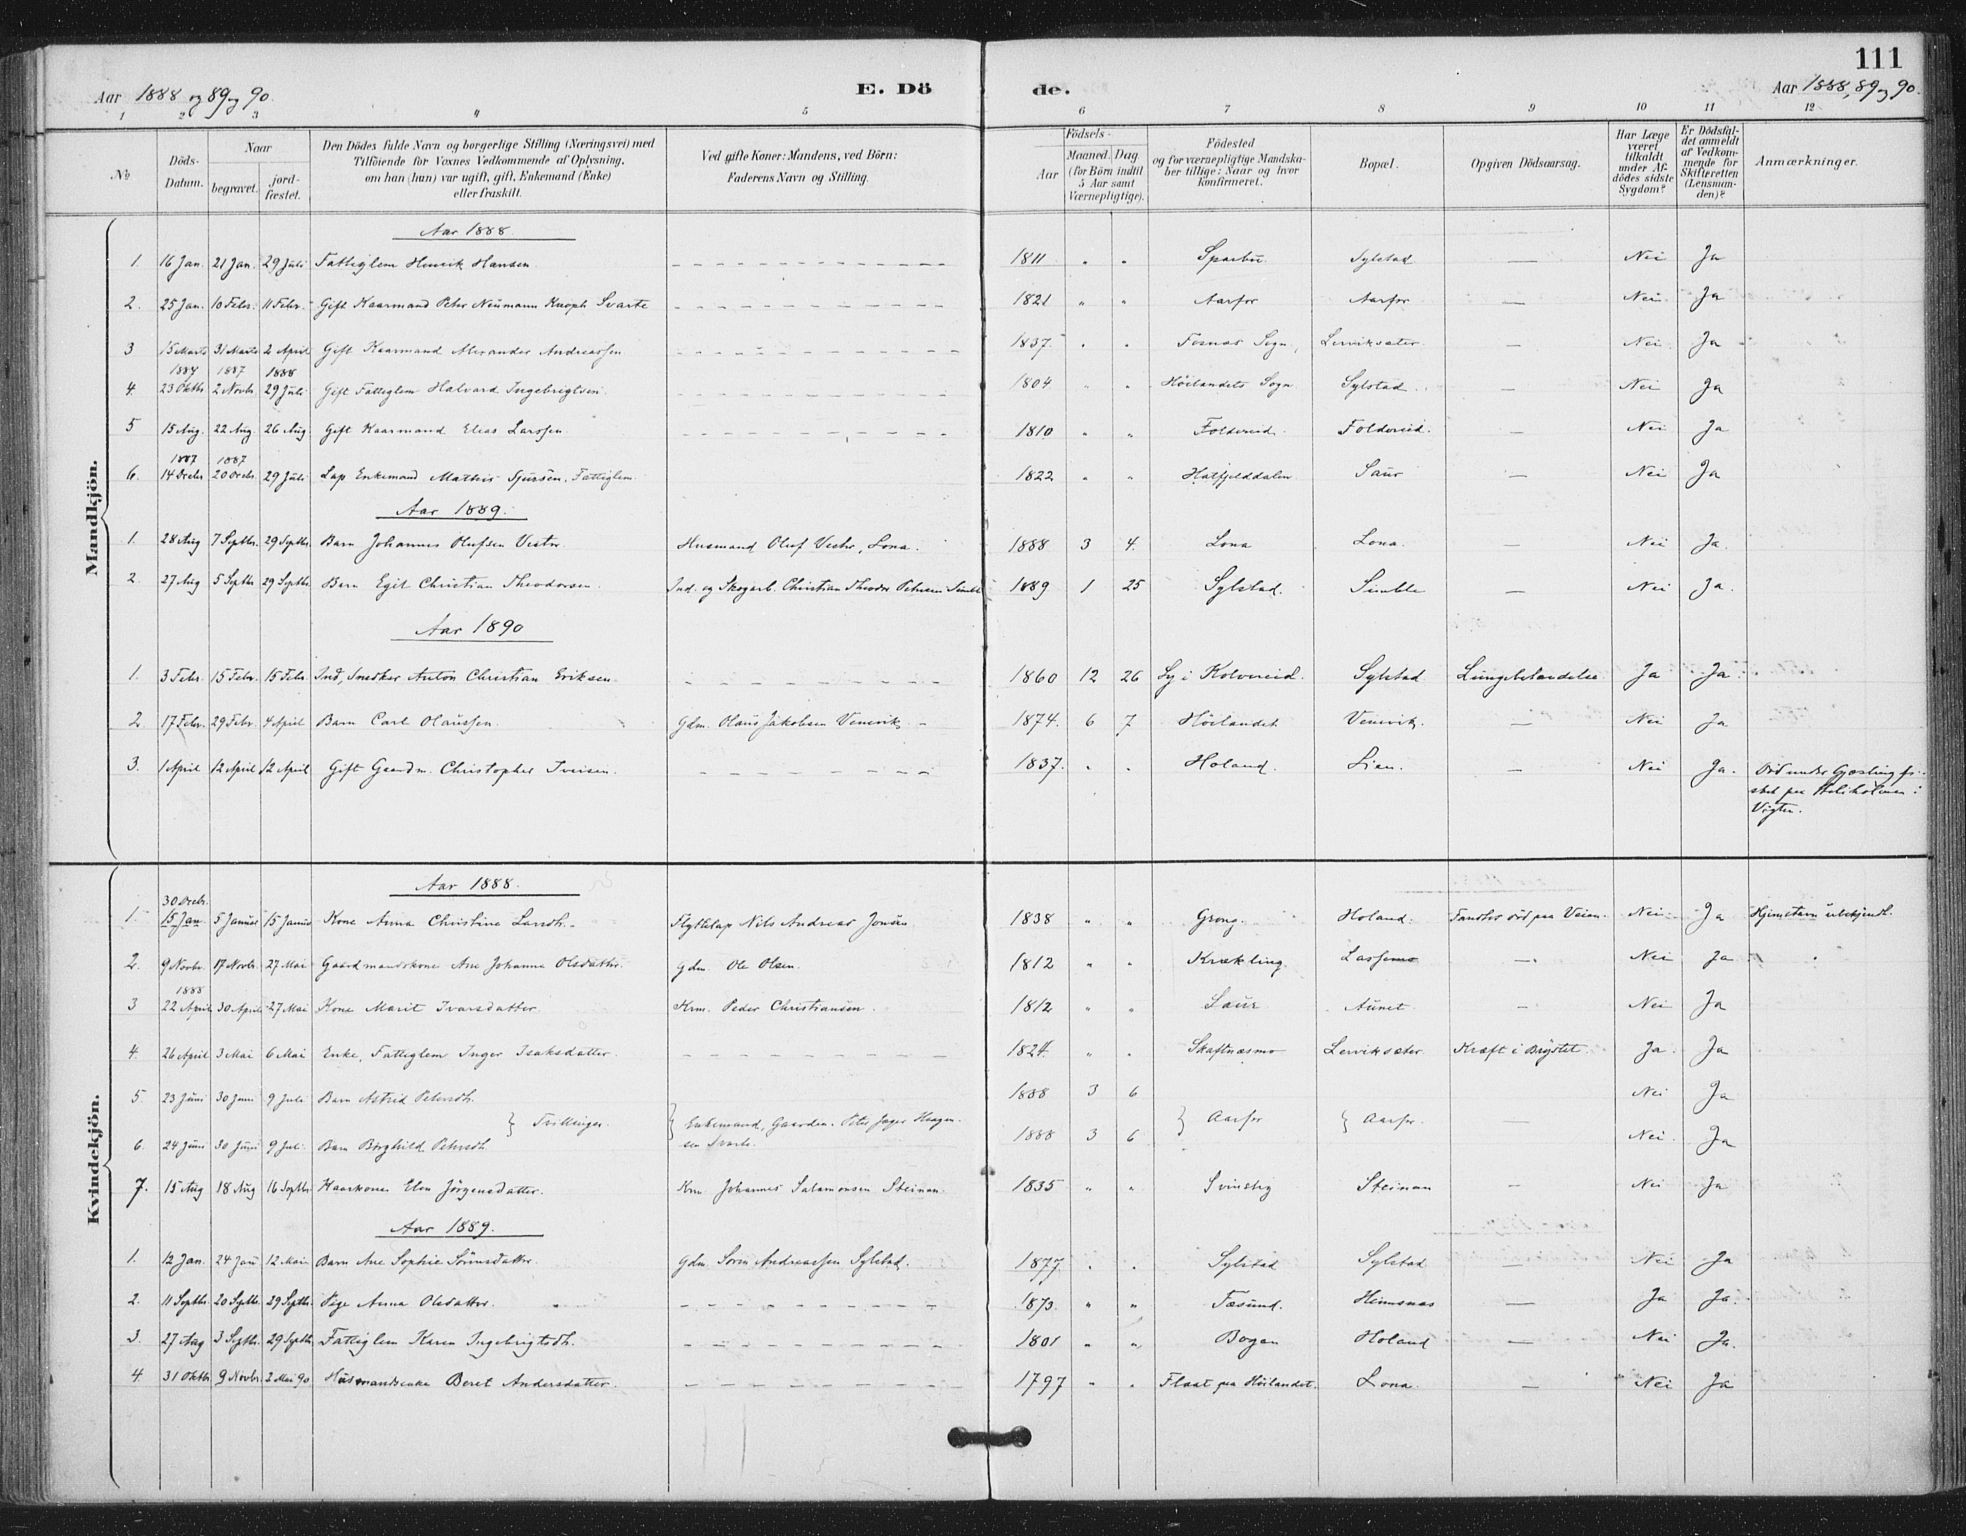 111
Aar 1888 og 89 og 90. E. Dö de. Aar 1888, 89 og 90.
1 2 3 4 5 6 7 8 9 10 11 12
No Döds-Datum. Naar begravet. jordfæstet. Den Dödes fulde Navn og borgerlige Stilling (Næringsvei) med Tilföiende for Voxnes Vedkommende af Oplysning, om han (hun) var ugift, gift, Enkemand (Enke) eller fraskilt. Ved gifte Koner: Mandens, ved Börn: Faderens Navn og Stilling. Födsels- Aar Maaned. Dag (for Börn indtil 5 Aar samt Værnepligtige). Födested og for værnepligtige Mandskaber tillige: Naar og hvor konfirmeret. Bopæl. Opgiven Dödsaarsag. Har Læge været tilkaldt under Afdödes sidste Sygdom? Er Dödsfaldet anmeldt af Vedkommende for Skifteretten (Lensmanden)? Anmærkninger.
Mandkjön.
Aar 1888
1. 16 Jan. 21 Jan. 29 Juli Fattiglem Henrik Hansen 1811 " " Sparbu. Sylstad — Nei Ja
2. 25 Jan. 10 Febr. 11 Febr. Gift Kaarmand Peter Neumann Knoph Svarte 1821 " " Aarfor Aarfor — Nei Ja
3 15 Marts 31 Marts 2 April Gift Kaarmand Alexander Andreassen 1837. " " Fosnes Sogn, Lervikseter — Nei Ja
1887 1887 1888
4. 23 Oktbr 2 Novbr. 29 Juli Gift Fattiglem Halvard Ingebrigtsen 1804 " " Höilandets Sogn Sylstad Nei Ja
5 15 Aug. 22 Aug 26 Aug Gift Kaarmand Elias Larssen 1810 " " Foldereid. Foldereid. — Nei Ja
1887 1887
6. 14 Decbr 20 Decbr. 29 Juli Lap Enkemand Mathis Sjursen, Fattiglem. 1822 " " Hatfjelddalen Saur — Nei Ja
Aar 1889.
1. 28 Aug 7 Septbr. 29 Septbr. Barn Johannes Olufsen Vestre Husmand Oluf Vestre, Lona. 1888 3 4. Lona Lona. — Nei Ja.
2. 27 Aug 5 Septbr 29 Septbr. Barn Egil Christian Theodorsen. Ind. og Skogarb. Christian Theodor Petersen Simle 1889 1 25 Sylstad. Simble — Nei Ja.
Aar 1890
1. 3 Febr. 15 Febr. 15 Febr. Ind, Snedker Anton Christian Eriksen 1860 12 26 Sy i Kolvereid. Sylstad Lungebetændelse Ja Ja.
2. 17 Febr. 29 Febr. 4 April Barn Carl Olaussen. Gdm. Olaus Jakobsen Vemevik 1874. 6 7 Höilandet. Vemevik. — Nei Ja
3. 1 April 12 April 12 April Gift Gaardm. Christopher Iversen. 1837. " " Holand. Lian. — Nei Ja. Död under
Vigten.
Kvindekjön.
Aar 1888.
30 Decbr.
1. 15 Jan 5 Januar 15 Januar Kone Anna Christine Larsdtr. Flytlap Nils Andreas Jonsen 1838 " " Grong. Holand. Fandtes död paa Veien. Nei Ja Hjemstavn ubekjendt.
2. 9 Novbr. 17 Novbr. 27 Mai Gaardmandskone Ane Johanna Olsdatter. Gdm. Ole Olsen. 1812 " " Krækling. Lassemo — Nei Ja
1888
3 22 April 30 April 27 Mai Kone Marit Ivarsdatter Krm. Peder Christiansen. 1812 " " Saur Aunet — Nei Ja
4. 26 April 3 Mai 6 Mai Enke, Fattiglem Inger Isaksdatter. 1824. " " Skaftnæsmo Lervikseter. Kræft i Brystet. Ja. Ja
5. 23 Juni 30 Juni 9 Juli Barn Astrid Petersdtr. 1888 3 6 Nei Ja
} Tvillinger. } Enkemand, Gaardm. Peter Jager Haagensen Svarte } Aarfor } Aarfor. —
6. 24 Juni 30 Juni 9 Jul. Barn Borghild Petersdtr. 1888 3 6 Nei. Ja
7. 15 Aug 18 Aug 16 Septbr. Kaarkone Elen Jörgensdatter. Krm. Johannes Salamonsen Steinan. 1835 " " Svinsteg Steinan — Nei Ja
Aar 1889.
1. 12 Jan. 24 Jan 12 Mai Barn Ane Sophie Sörensdatter. Gdm. Sören Andreassen Sylstad. 1877. " " Sylstad Sylstad — Nei Ja
2. 11 Septbr. 20 Septbr. 29 Septbr. Pige Anna Olsdatter. 1873. " " Fæsund. Heimsnes — Ja Ja.
3. 27 Aug 3 Septbr. 29 Septbr. Fattiglem Karen Ingebrigtsdtr. 1801 " " Bogan Holand — Nei Ja.
4 31 Oktbr. 9 Novbr. 2 Mai 90 Husmandsenke Beret Andersdatter. 1797 " " Flaat paa Höilandet. Lona. — Nei Ja